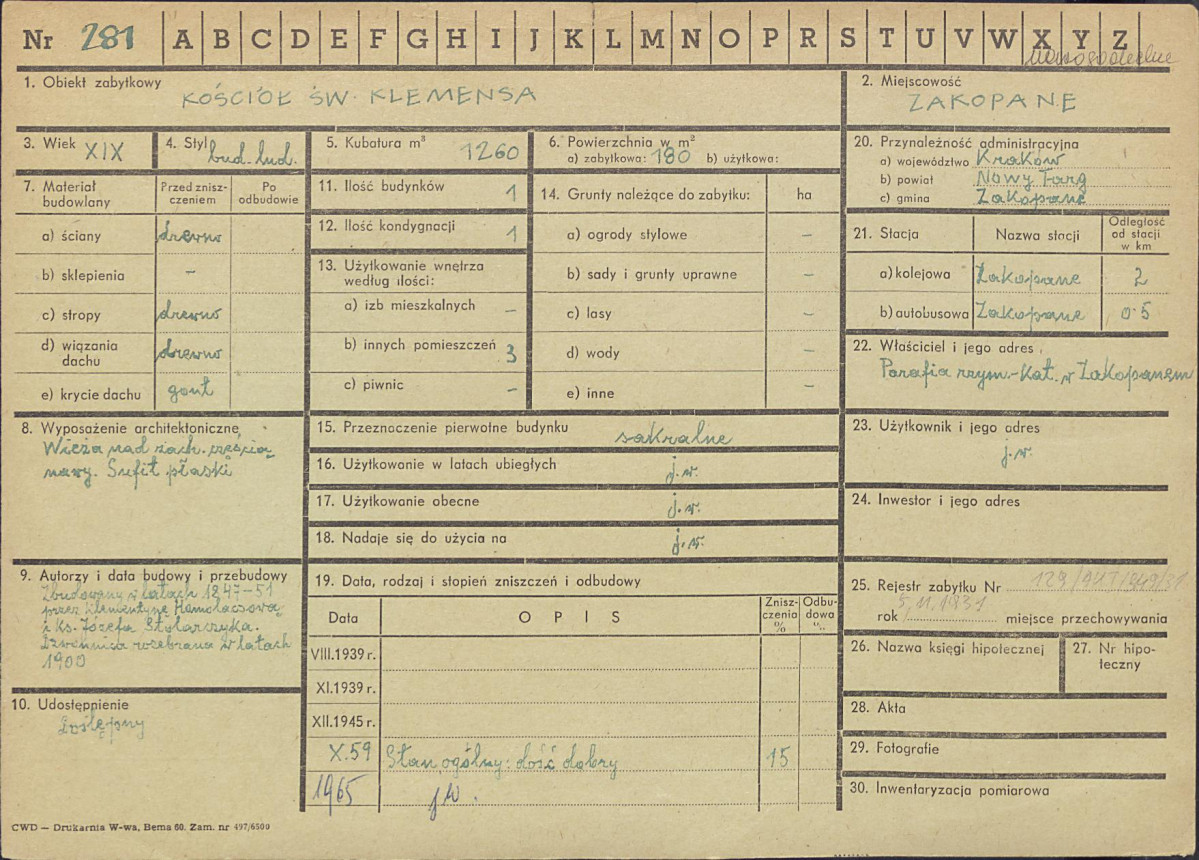 Nr 281 A B C D E F G H I J K L M N O P R S T U V W X Y Z
1. Obiekt zabytkowy
KOŚCIÓŁ ŚW. KLEMENSA
2. Miejscowość
ZAKOPANE
3. Wiek XIX
4. Styl bud. lud.
5. Kubatura m³ 1260
6. Powierzchnia w m²
a) zabytkowa: 180 b) użytkowa:
20. Przynależność administracyjna
a) województwo Kraków
b) powiat Nowy Targ
c) gmina Zakopane
7. Materiał budowlany
Przed zniszczeniem
Po odbudowie
a) ściany drewno
b) sklepienia –
c) stropy drewno
d) wiązania dachu drewno
e) krycie dachu gont
11. Ilość budynków 1
12. Ilość kondygnacji 1
13. Użytkowanie wnętrza
według ilości:
a) izb mieszkalnych –
b) innych pomieszczeń 3
c) piwnic –
14. Grunty należące do zabytku: ha
a) ogrody stylowe –
b) sady i grunty uprawne –
c) lasy –
d) wody –
e) inne –
21. Stacja Nazwa stacji Odległość od stacji w km
a) kolejowa Zakopane 2
b) autobusowa Zakopane 0.5
22. Właściciel i jego adres
Parafia rzym.-kat. w Zakopanem
8. Wyposażenie architektoniczne
Wieża nad zach. częścią
nawy. Sufit płaski
15. Przeznaczenie pierwotne budynku sakralne
16. Użytkowanie w latach ubiegłych j.w.
17. Użytkowanie obecne j.w.
18. Nadaje się do użycia na j.w.
23. Użytkownik i jego adres
j.w.
24. Inwestor i jego adres
9. Autorzy i data budowy i przebudowy
Zbudowany w latach 1847-51
przez Klementynę Homolacsową
i Ks. Józefa Stolarczyka.
Dzwonnica rozebrana w latach
1900
10. Udostępnienie
Dostępny
19. Data, rodzaj i stopień zniszczeń i odbudowy
Data OPIS Zniszczenia % Odbudowa %
VIII.1939 r.
XI.1939 r.
XII.1945 r.
X.59 Stan ogólny: dość dobry 15
1965 jw.
25. Rejestr zabytku Nr
rok 5.11.1931 miejsce przechowywania
26. Nazwa księgi hipotecznej
27. Nr hipoteczny
28. Akta
29. Fotografie
30. Inwentaryzacja pomiarowa
CWD — Drukarnia W-wa, Bema 60. Zam. nr 497/6500